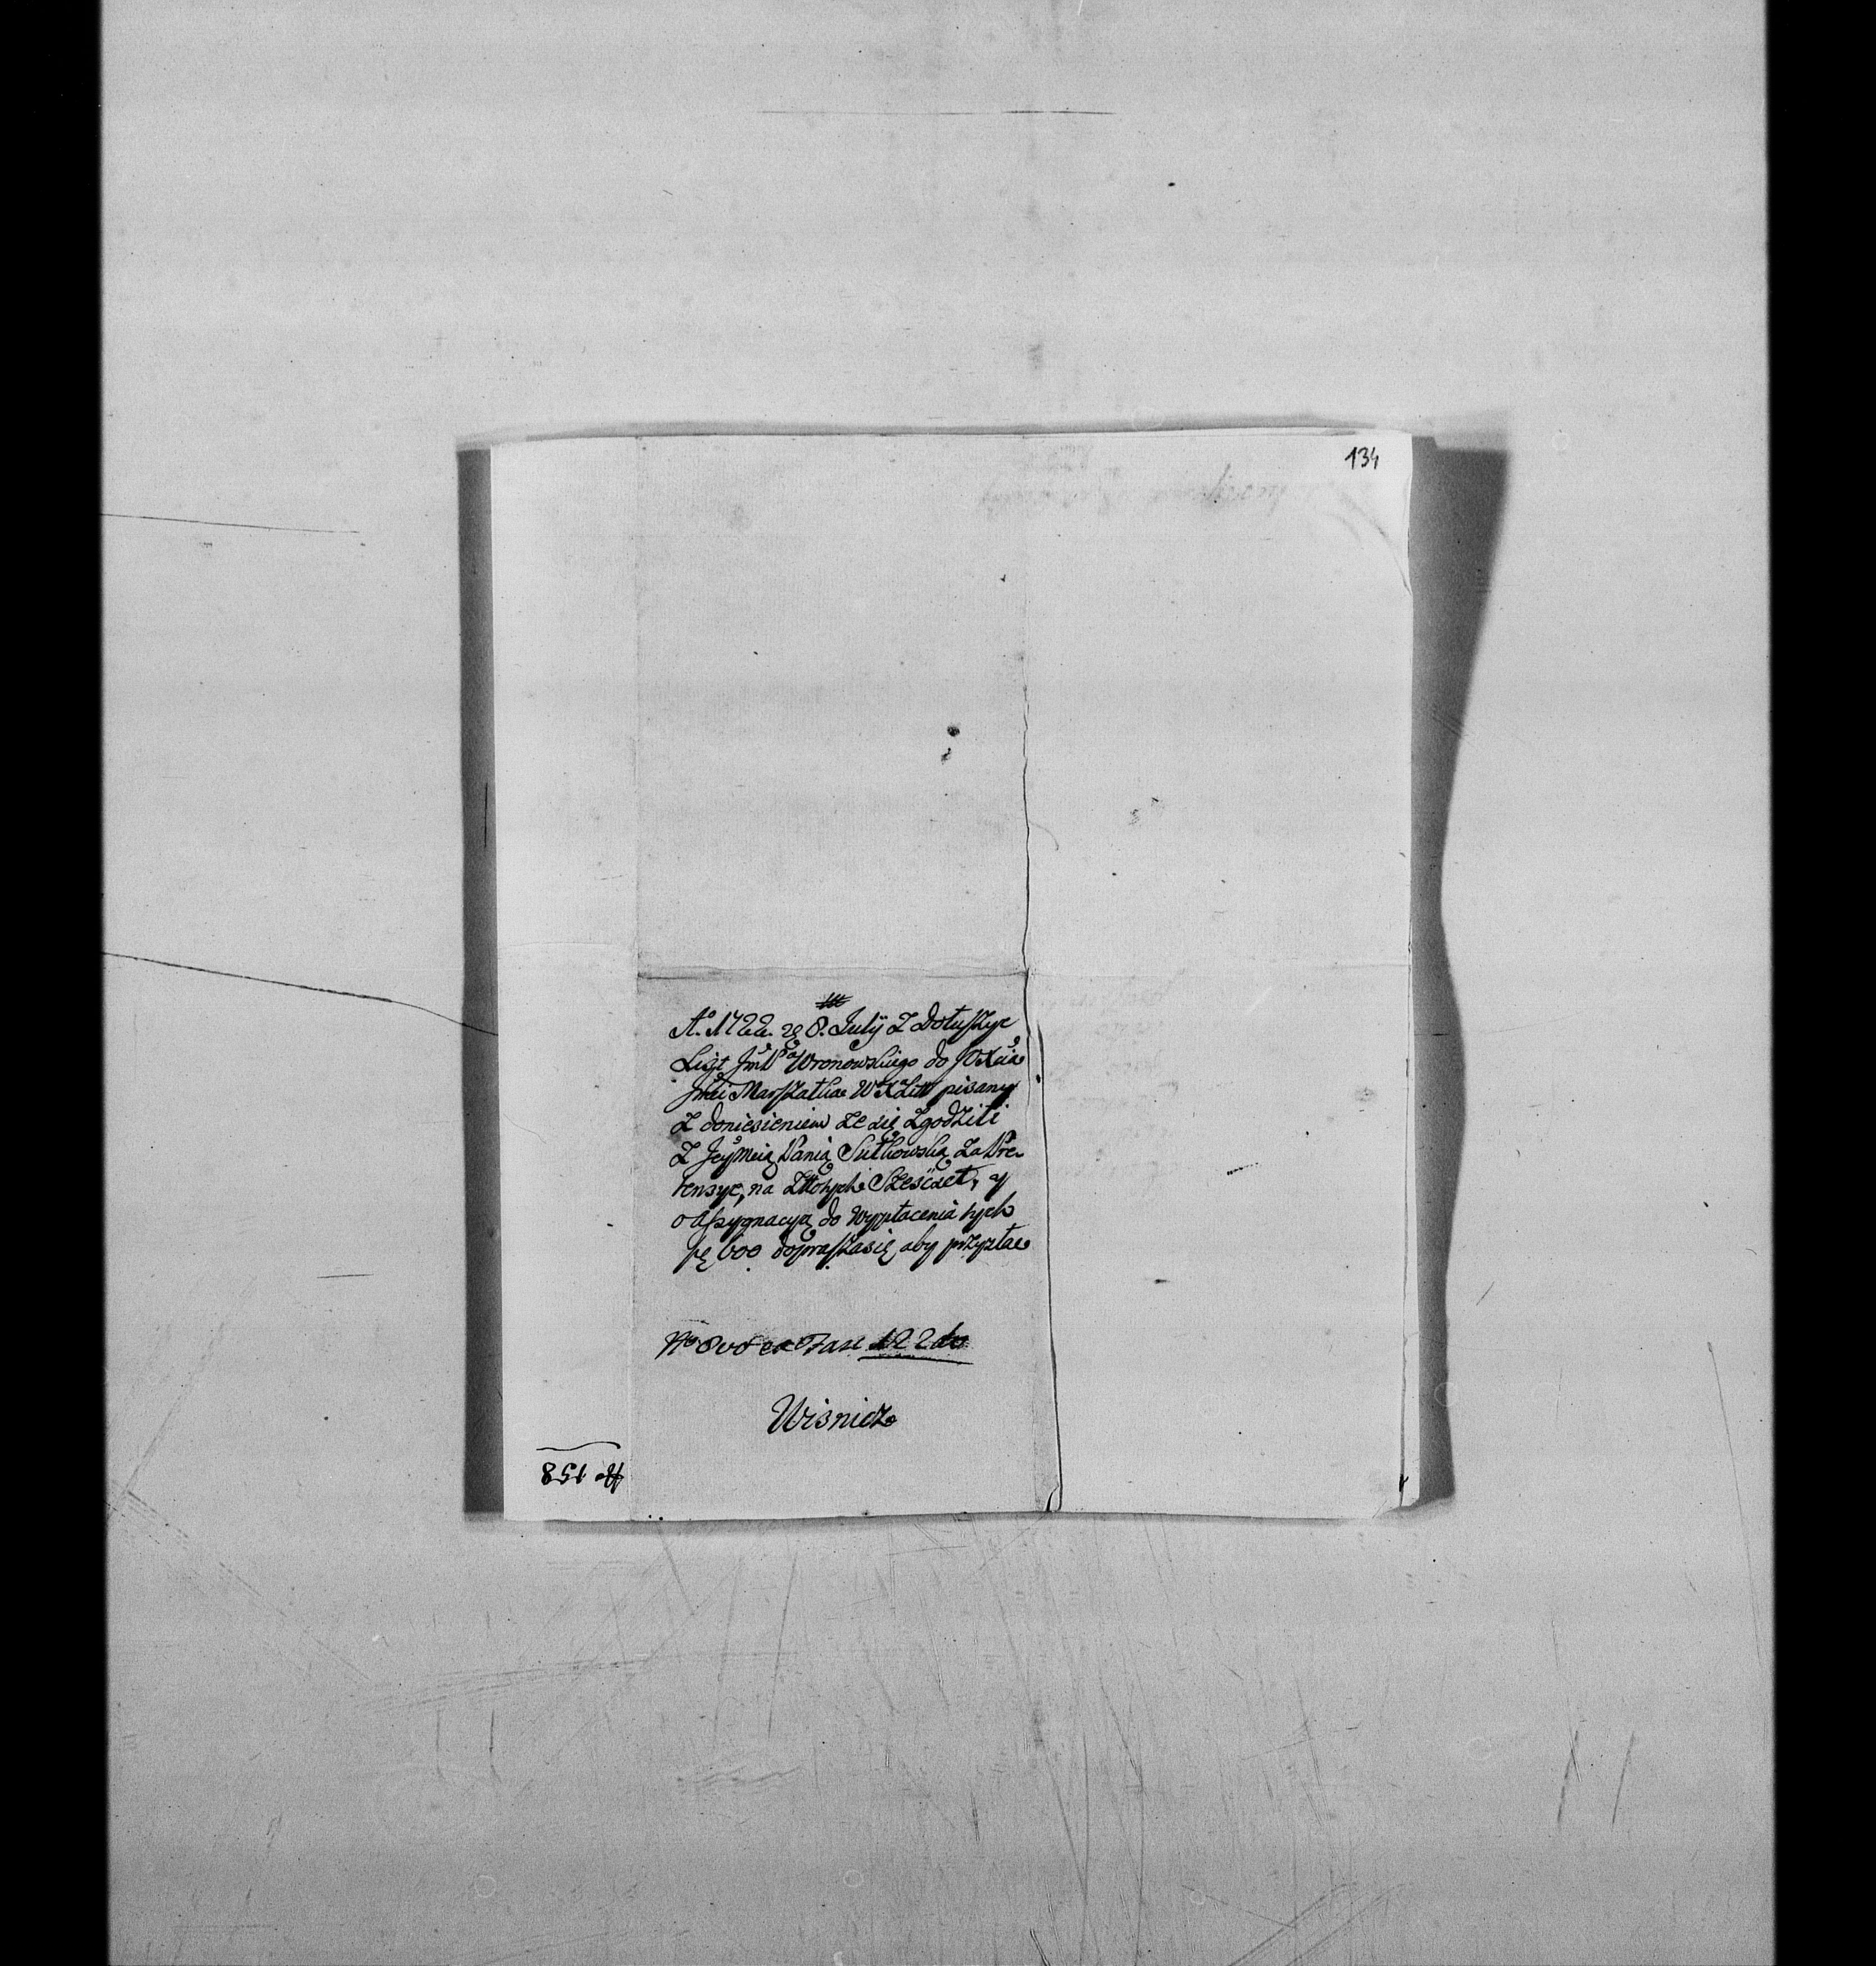 134
A° 1722. 28. July Z Dołuszyc
List Jm Pa Wronowskiego do JO Xcia
Jmci Marszałka WXLitt pisany
Z doniesieniem że się zgodzili
Z Jeymcią Panią Sutkowską za Pre-
tensye, na Złłotych Szescset, y
o assygnacyą do wypłacenia tych
600 dopraszasię, aby przysłac
Fasc 122do
Wisnicz
No 158